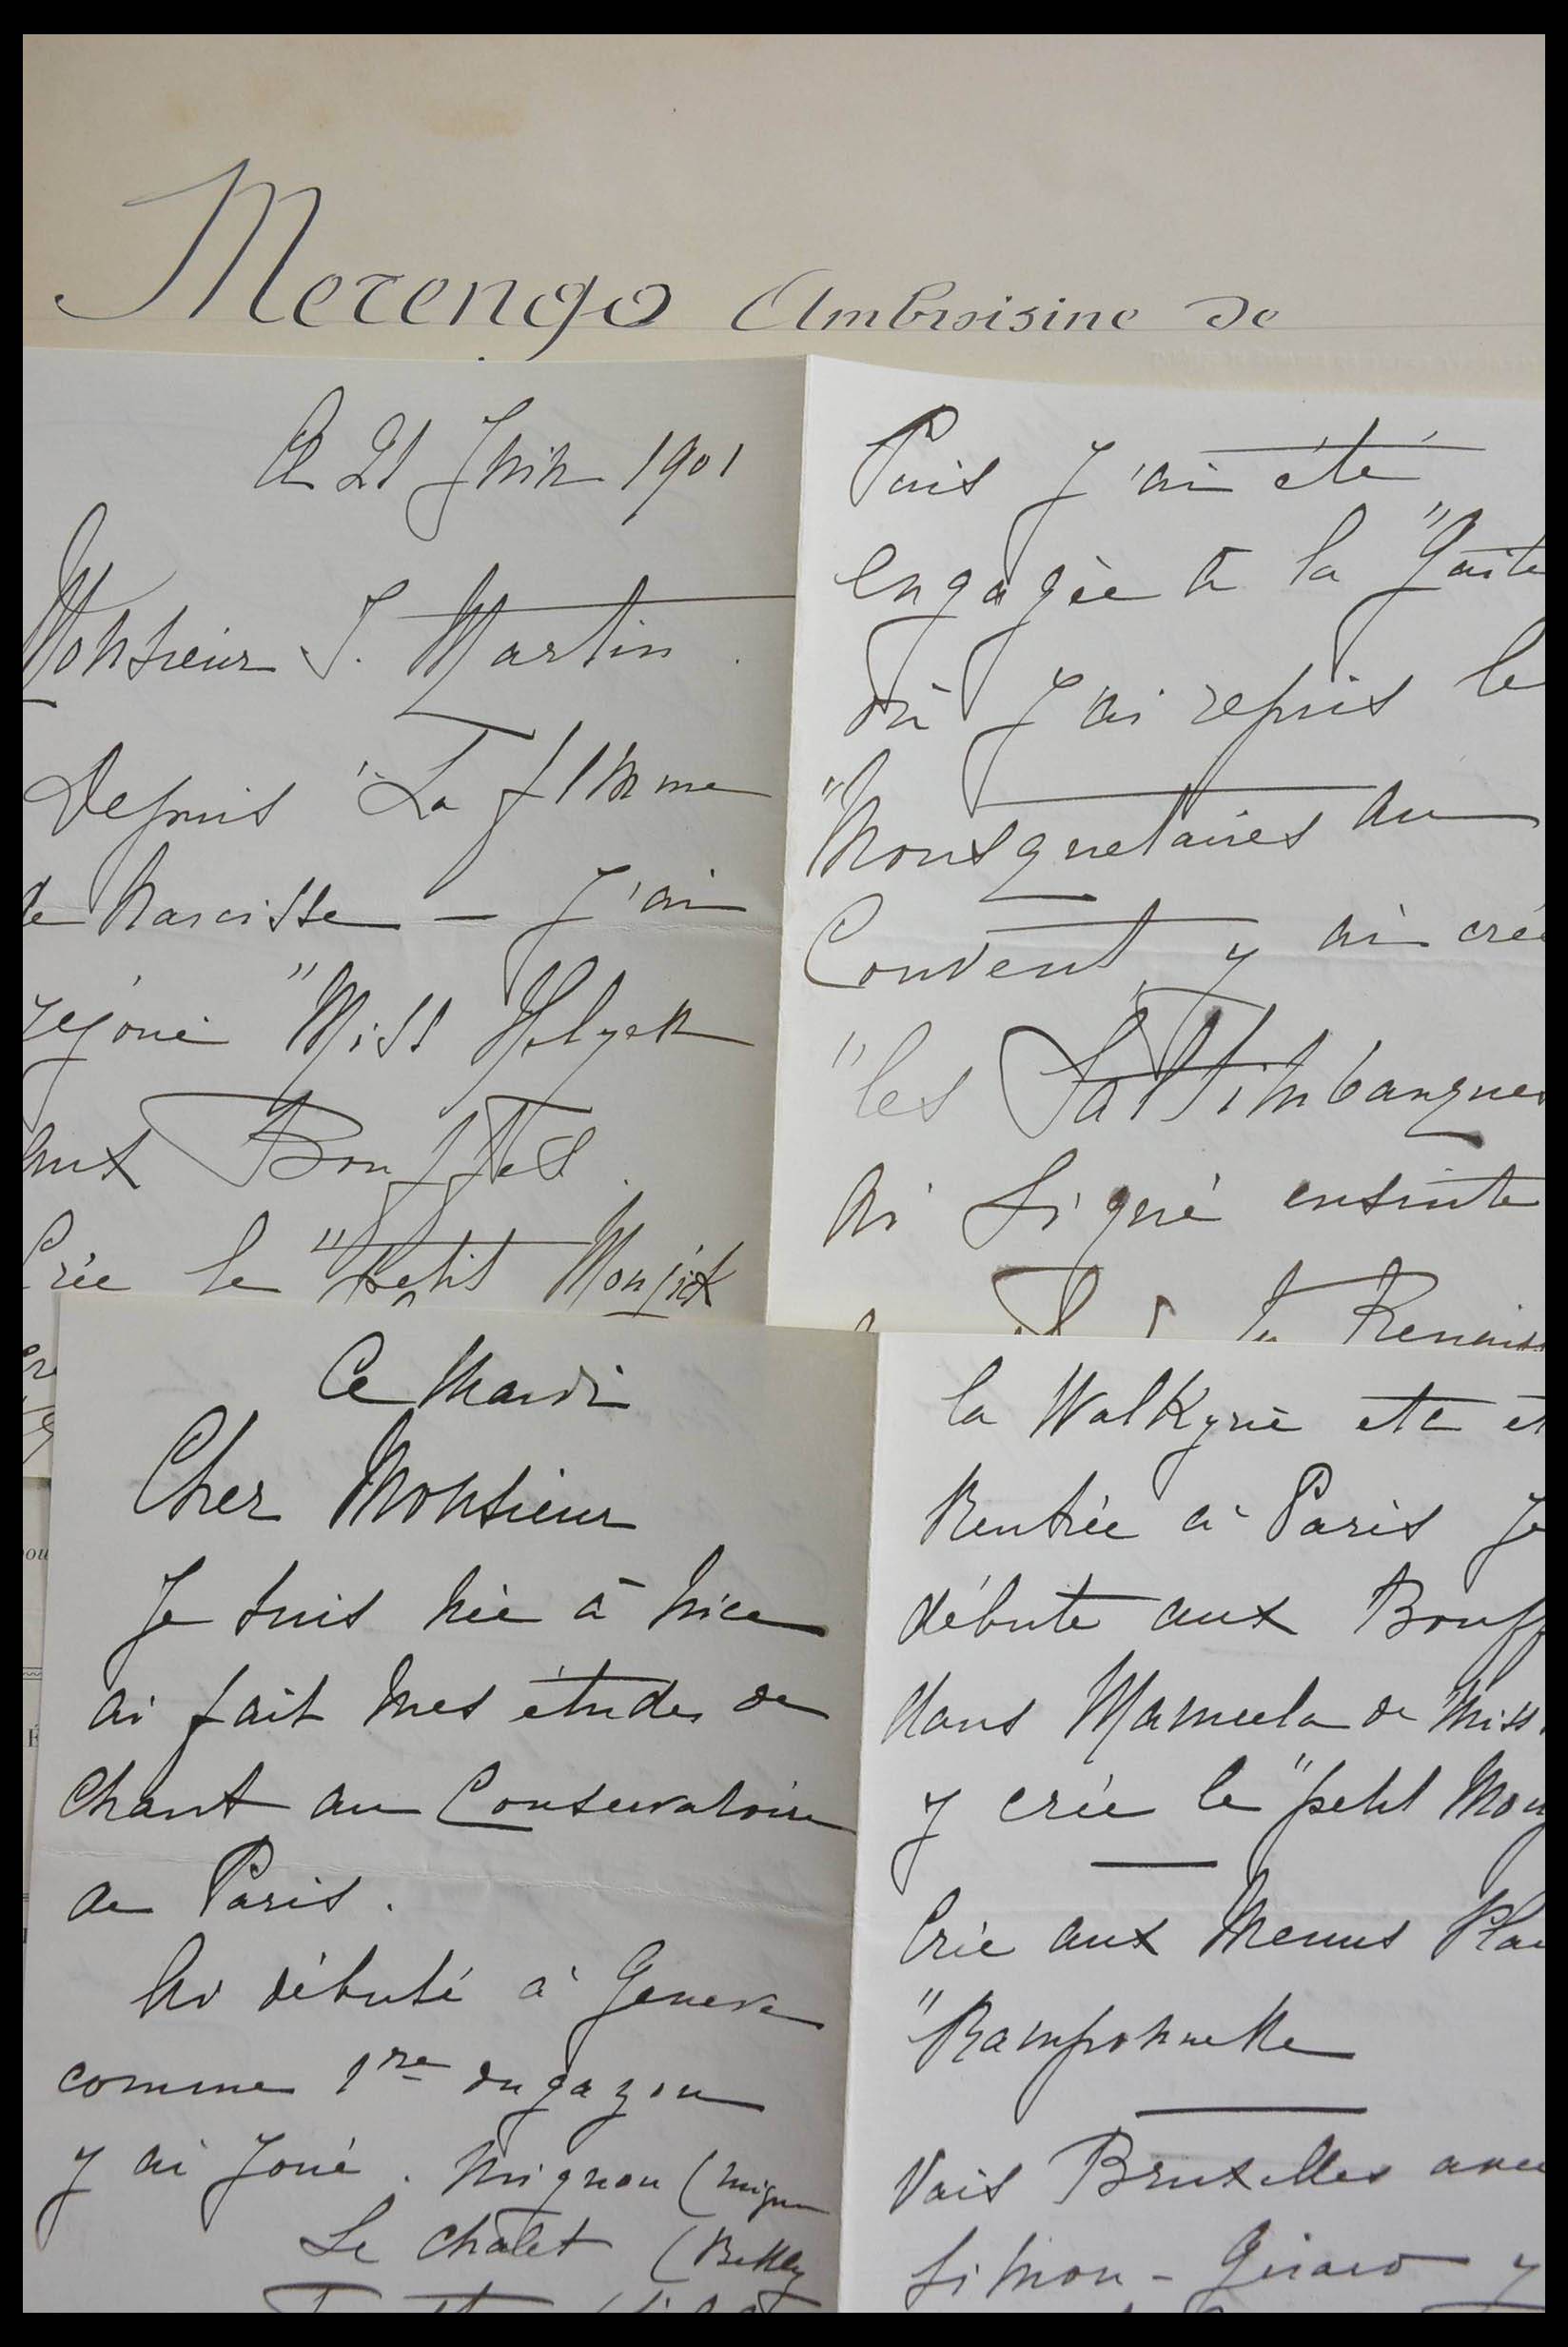 Merengo Ambroisine de
Ce 21 Juin 1901
Monsieur J. Martin.
Depuis "La femme
de Narcisse — J'ai
rejoué "Miss Helyett
aux Bouffes.
Crée le "petit Moujick
Puis J'ai été
engagée à la "Gaité
où J'ai repris le
"Mousquetaires au
Couvent, y ai créé
"les Saltimbanques
Ai signé ensuite
la Renaiss
Ce Mardi
Cher Monsieur
Je suis née à Nice
ai fait mes études de
Chant au Conservatoire
de Paris.
Ai débuté à Geneve
comme 1re dugazon
y ai Joué. Mignon (Mignon
Le Chalet (Bettly
la Walkyrie etc et
Rentrée à Paris Je
débute aux Bouff
dans Manuela de Miss
y crée le "petit Mouj
Crée aux Menus Plai
"Ramponnette
Vais Bruxelles avec
Simon-Girard y